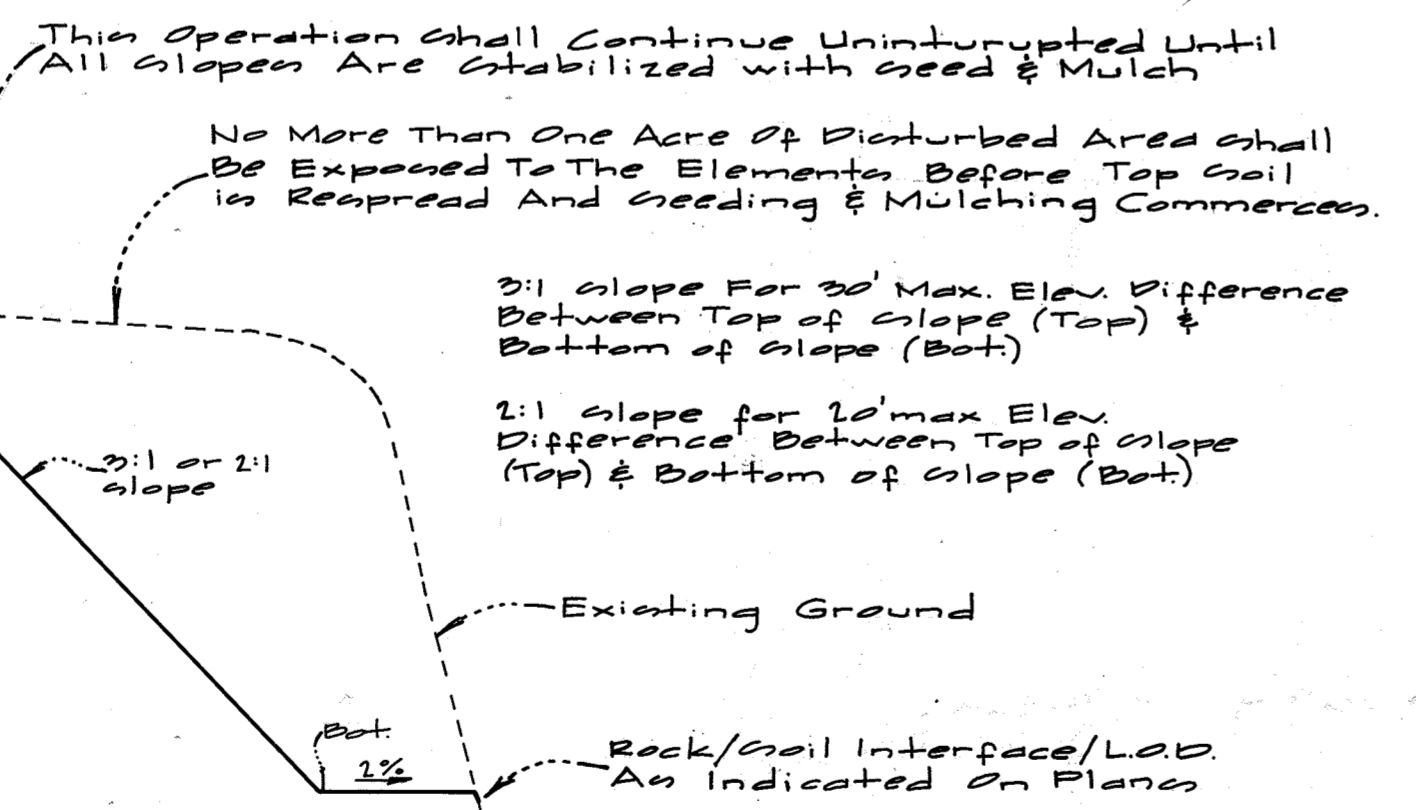 This Operation Shall Continue Uninturupted Until
All Slopes Are Stabilized with Seed & Mulch
No More Than One Acre Of Disturbed Area Shall
Be Exposed To The Elements Before Top Soil
is Respread And Seeding & Mulching Commerces.
3:1 Slope For 30' Max. Elev. Difference
Between Top of Slope (Top) &
Bottom of Slope (Bot.)
2:1 Slope for 20' max Elev.
Difference Between Top of Slope
(Top) & Bottom of Slope (Bot.)
3:1 or 2:1
Slope
Existing Ground
Bot.
2%
Rock/Soil Interface/L.O.D.
As Indicated On Plans